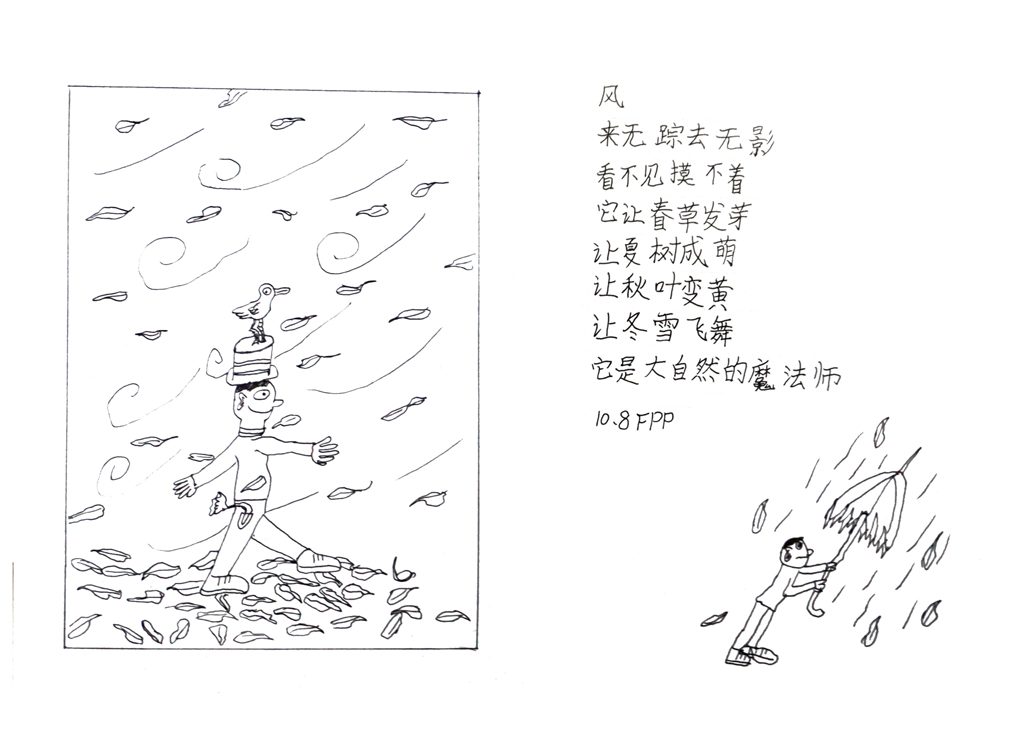 风
来无踪去无影
看不见摸不着
它让春草发芽
让夏树成萌
让秋叶变黄
让冬雪飞舞
它是大自然的魔法师
10.8 FPP